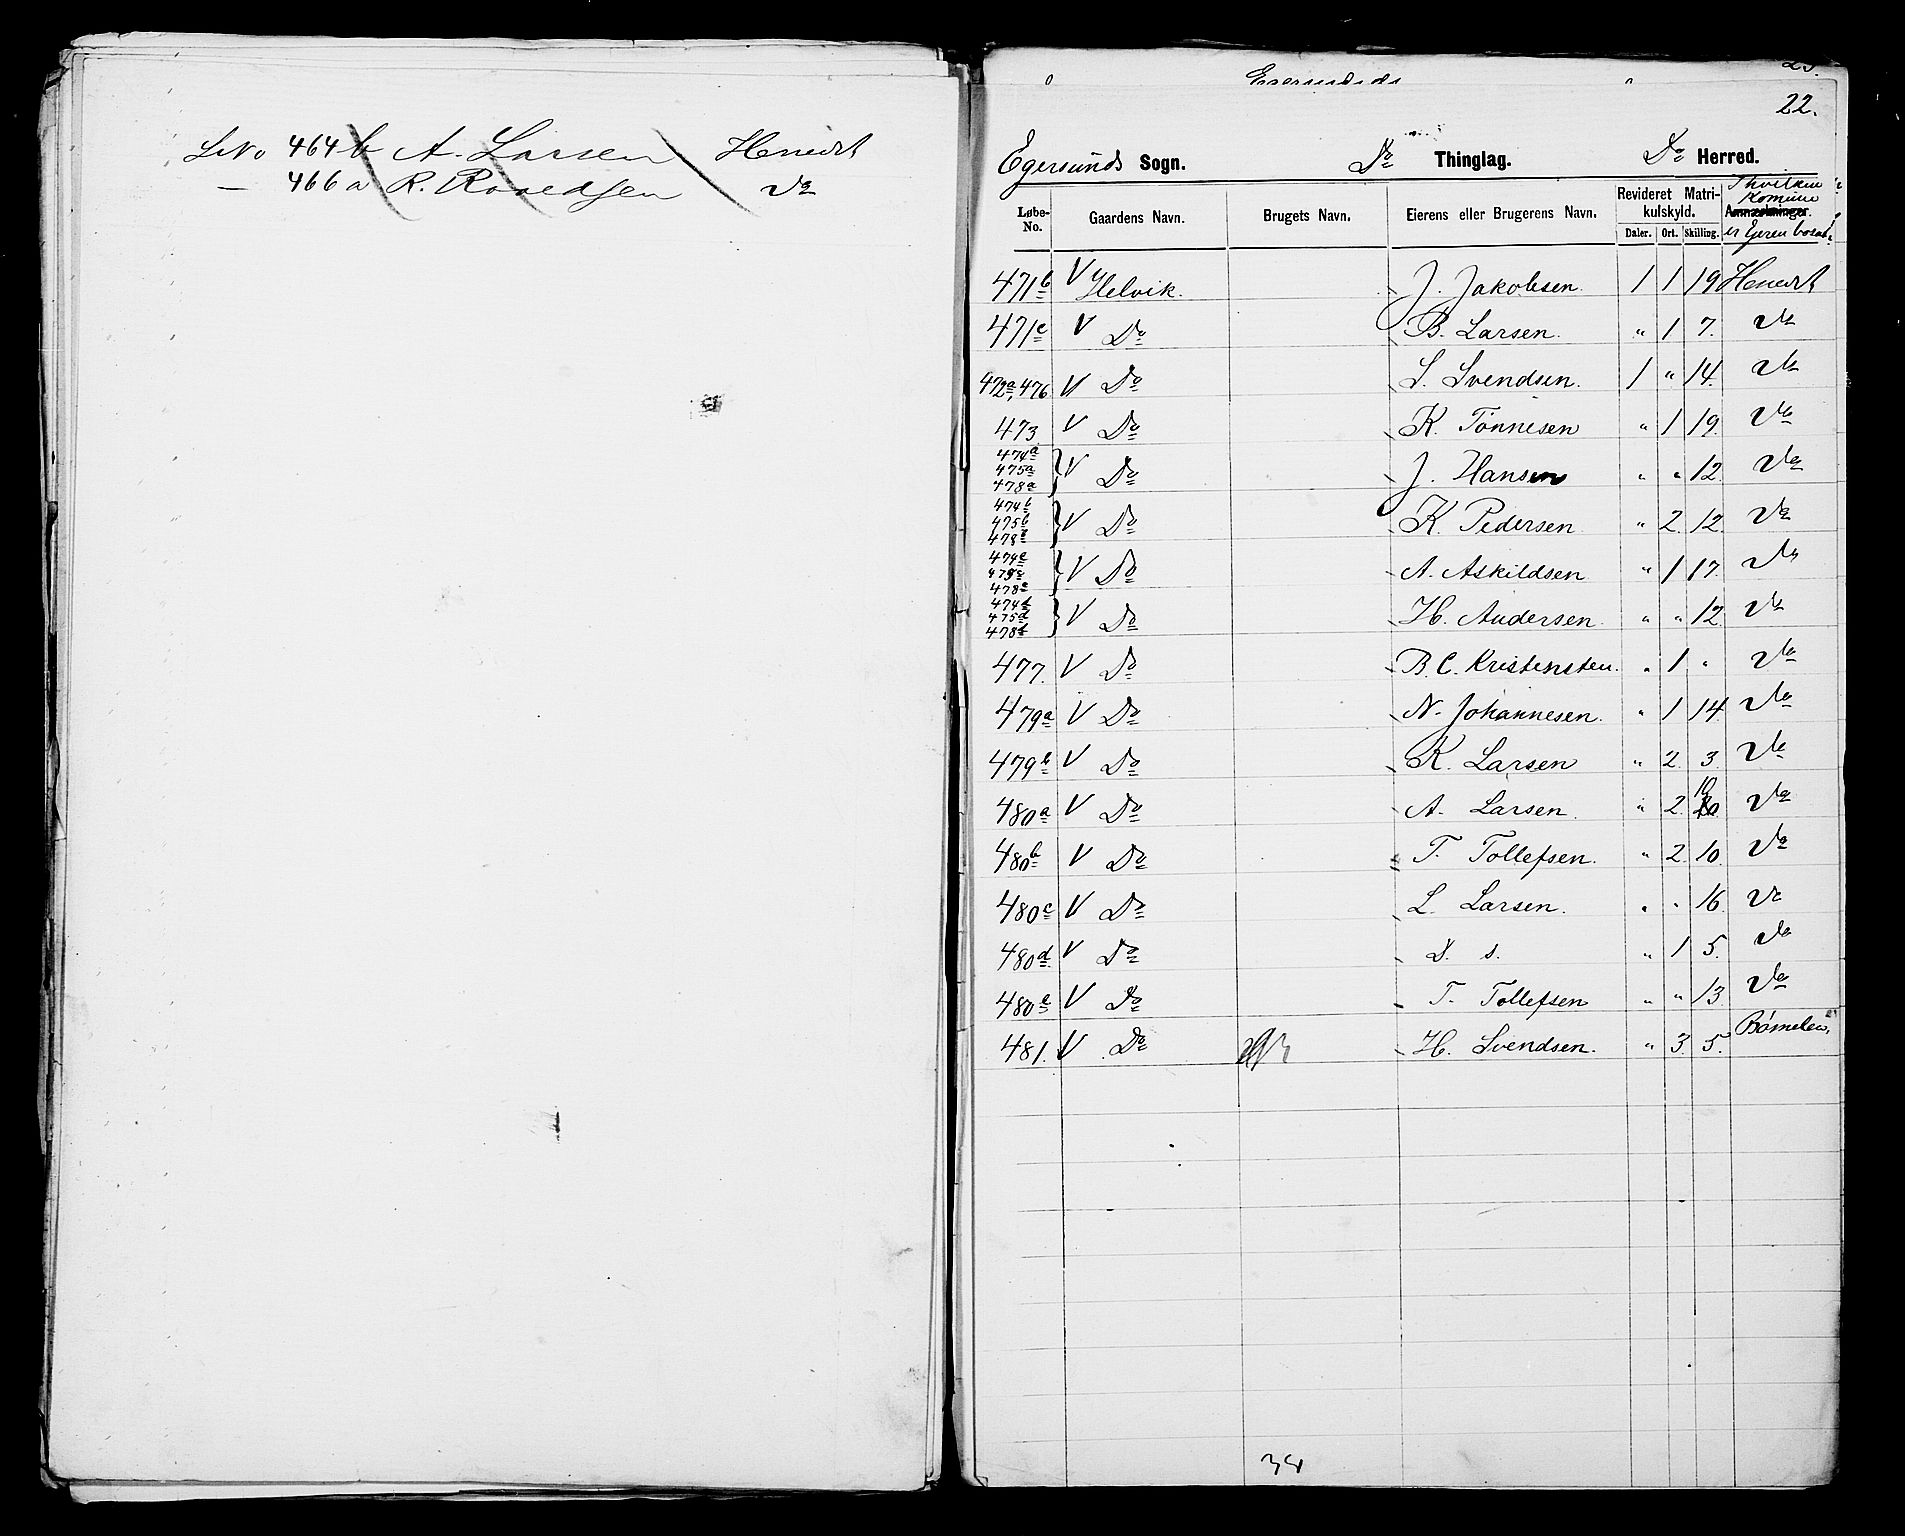 LNo 464 b A. Larsen Herredt
— 466 a R. Do
22.
Egersunds Sogn. Do Thinglag. Do Herred.
Løbe-No. Gaardens Navn. Brugets Navn. Eierens eller Brugerens Navn. Revideret Matrikulskyld. Daler. Ort. Skilling. Anmærkninger. I hvilken Komune er Ejeren bosat
471b V Helvik. J. Jakobsen. 1 1 19 Herredt
471c V Do B. Larsen. " 1 7. Do
472a, 476 V Do S. Svendsen. 1 " 14. Do
473 V Do K. Tönnesen " 1 19. Do
474a 475a 478a } V Do J. Hansen " " 12. Do
474b 475b 478b } V Do K. Pedersen " 2. 12. Do
474c 475c 478c } V Do A. Askildsen " 1 17. Do
474d 475d 478d } V Do H. Andersen. " " 12 Do
477. V Do B. C. Kristensten. " 1 " Do
479a V Do N. Johannesen. " 1 14 Do
479b V Do K. Larsen " 2. 3. Do
480a V Do A. Larsen. " 2. 10 Do
480b V Do T. Tollefsen. " 2. 10. Do
480c V Do L. Larsen. " " 16. Do
480d V Do D. s. " 1 5. Do
480e V Do T. Tollefsen " " 13. Do
481. V Do H. Svendsen. " 3 5. Bömelen
34